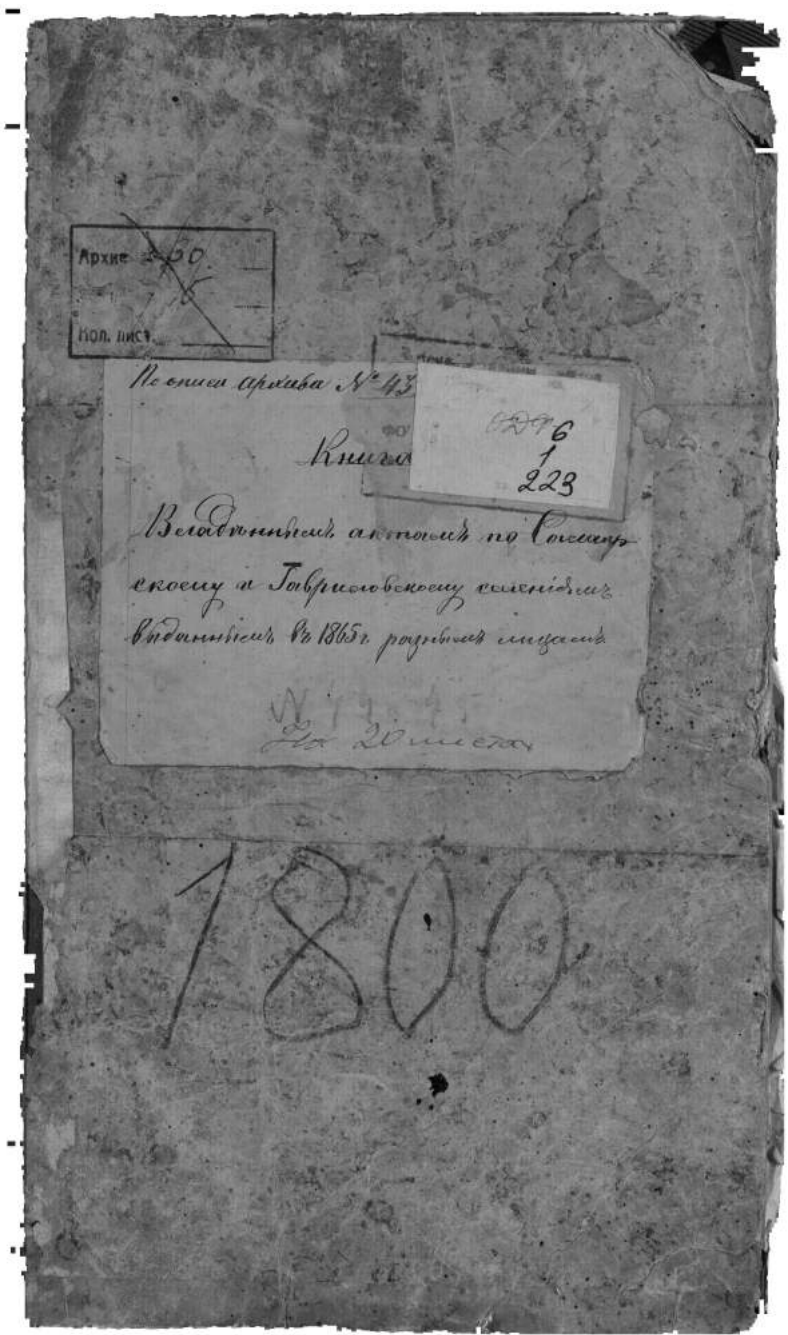 Архив 260
Кол. лист.
По описи архива № 43
ОДФ 6
1
223
Книга
Владѣннымъ актамъ по
скому и Гавриловскому селеніямъ
выданнымъ въ 1865 г. разнымъ лицамъ
На 20 листах
1800